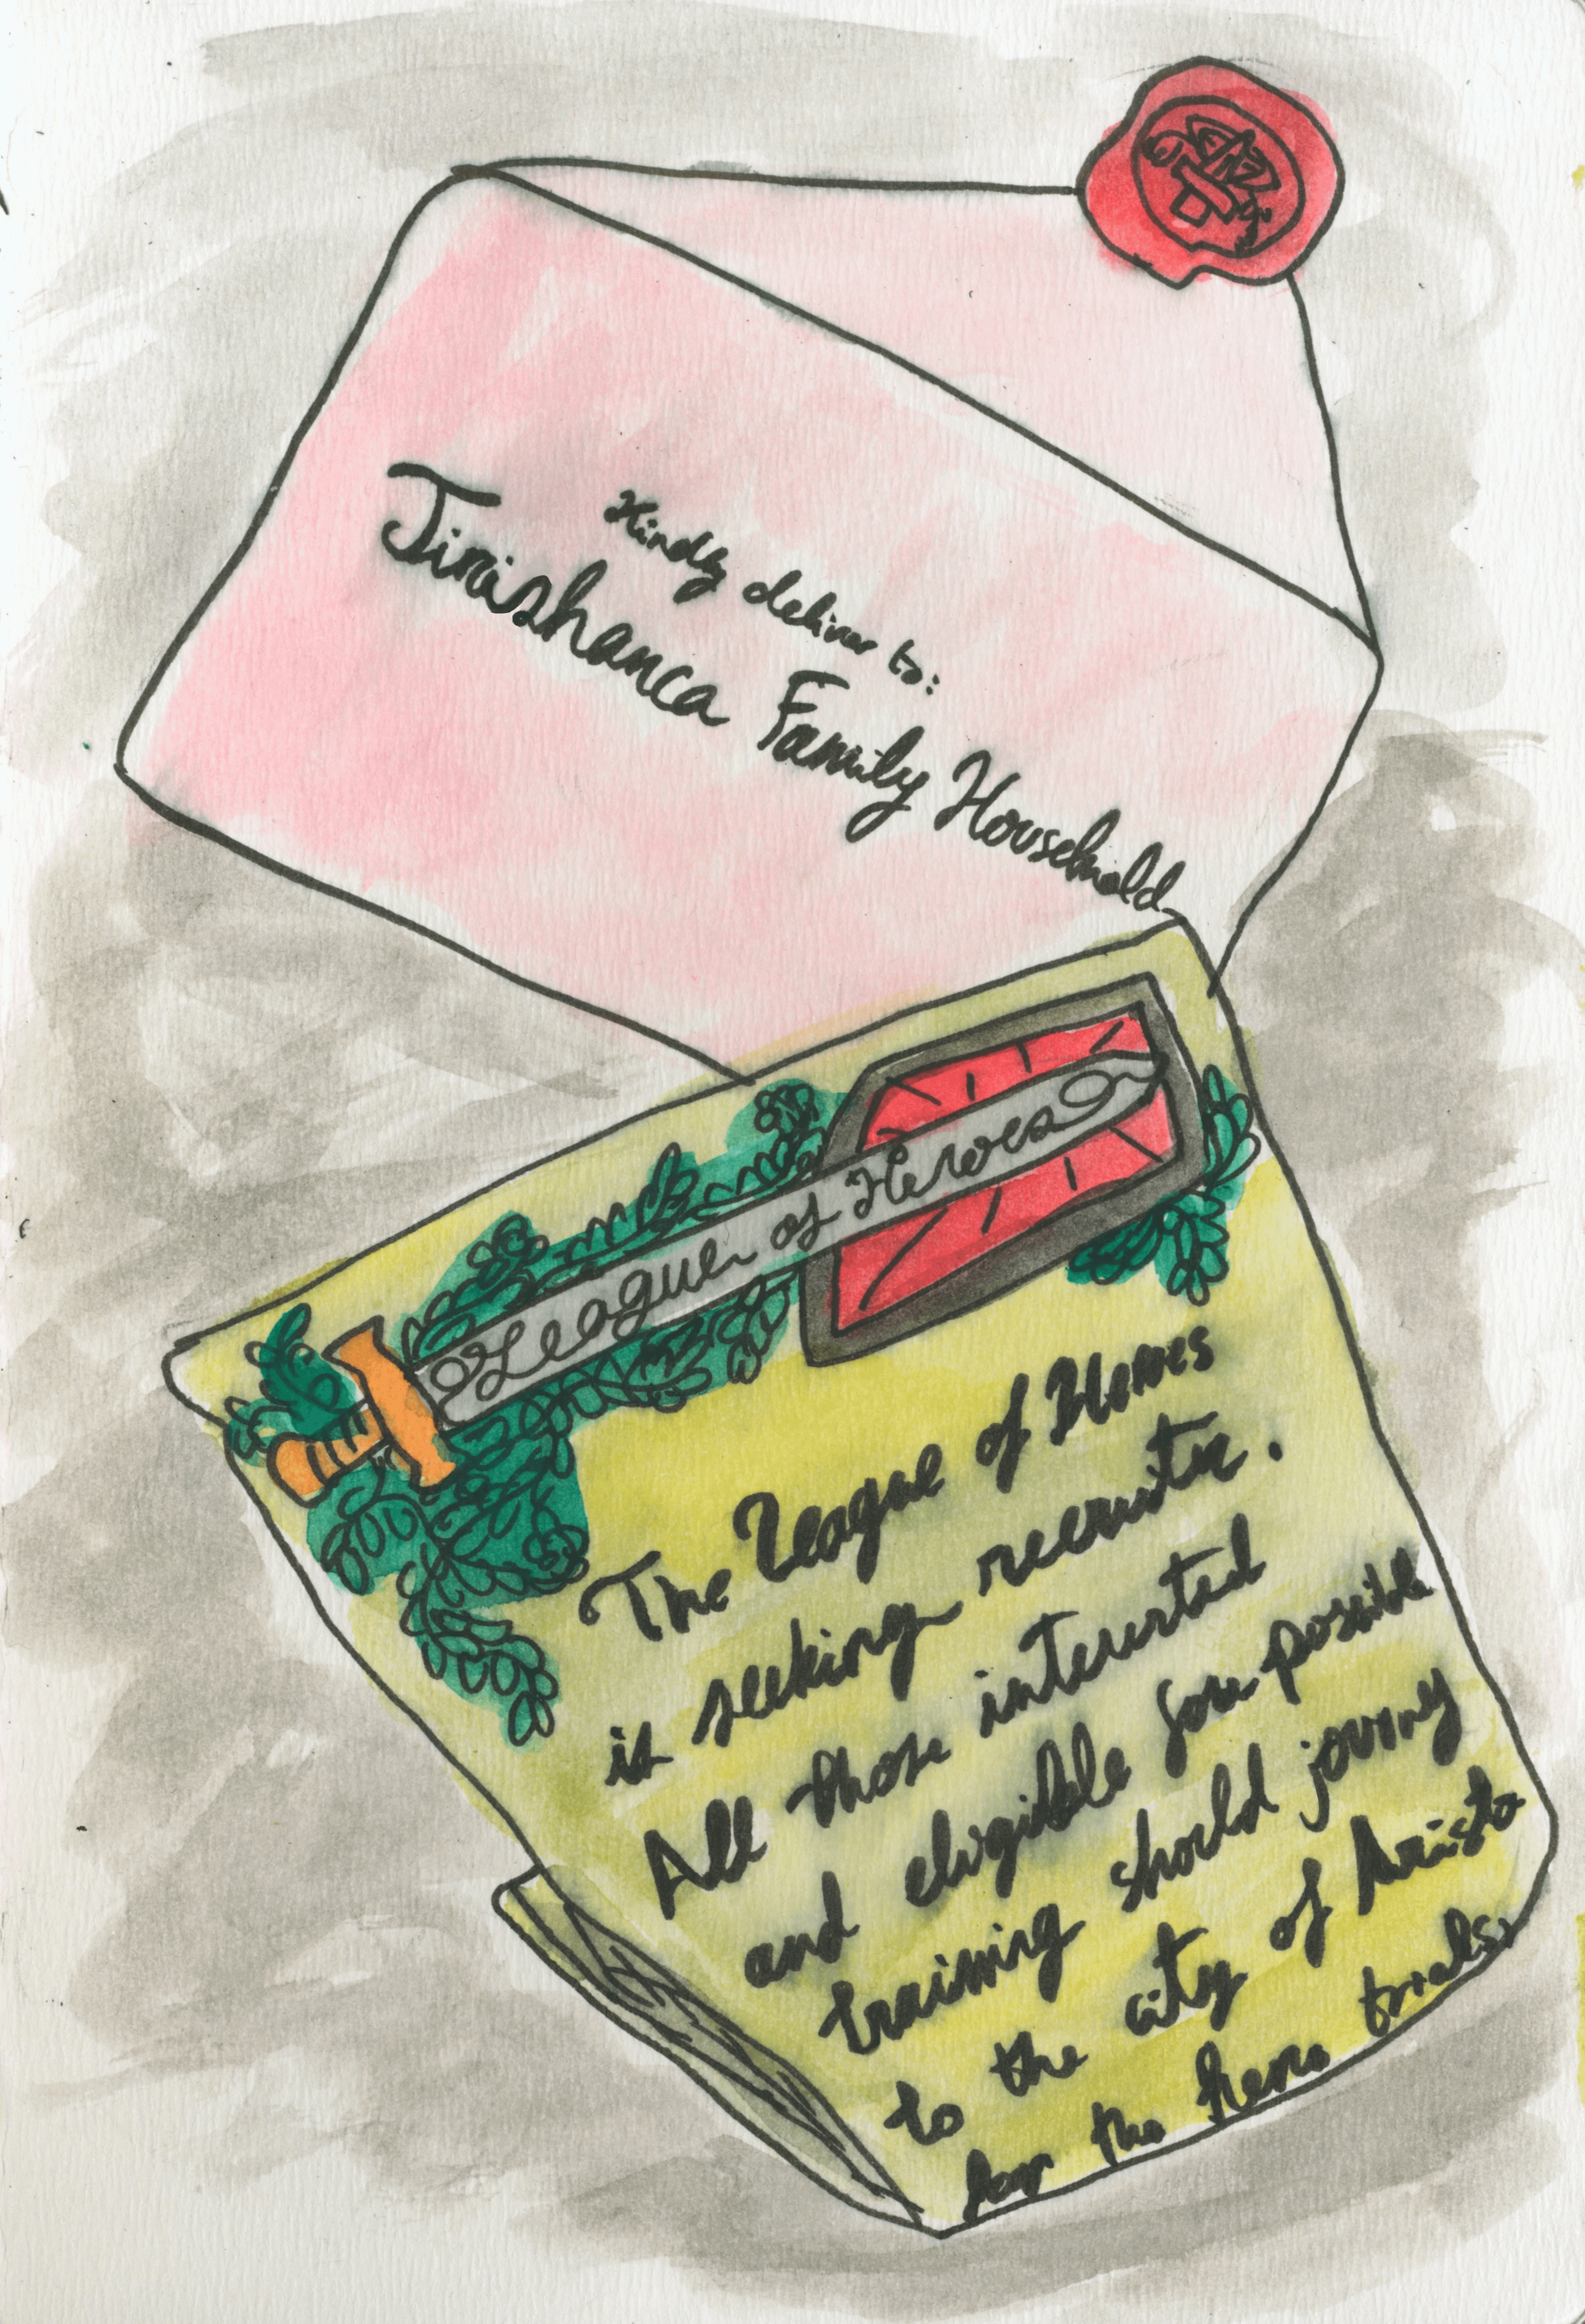 Kindly deliver to:
Jirishanca Family Household
League of Heroes
The League of Heroes
is seeking recruits.
All those interested
and eligible for possible
training should journey
to the city of Aristo
for the hero trials.